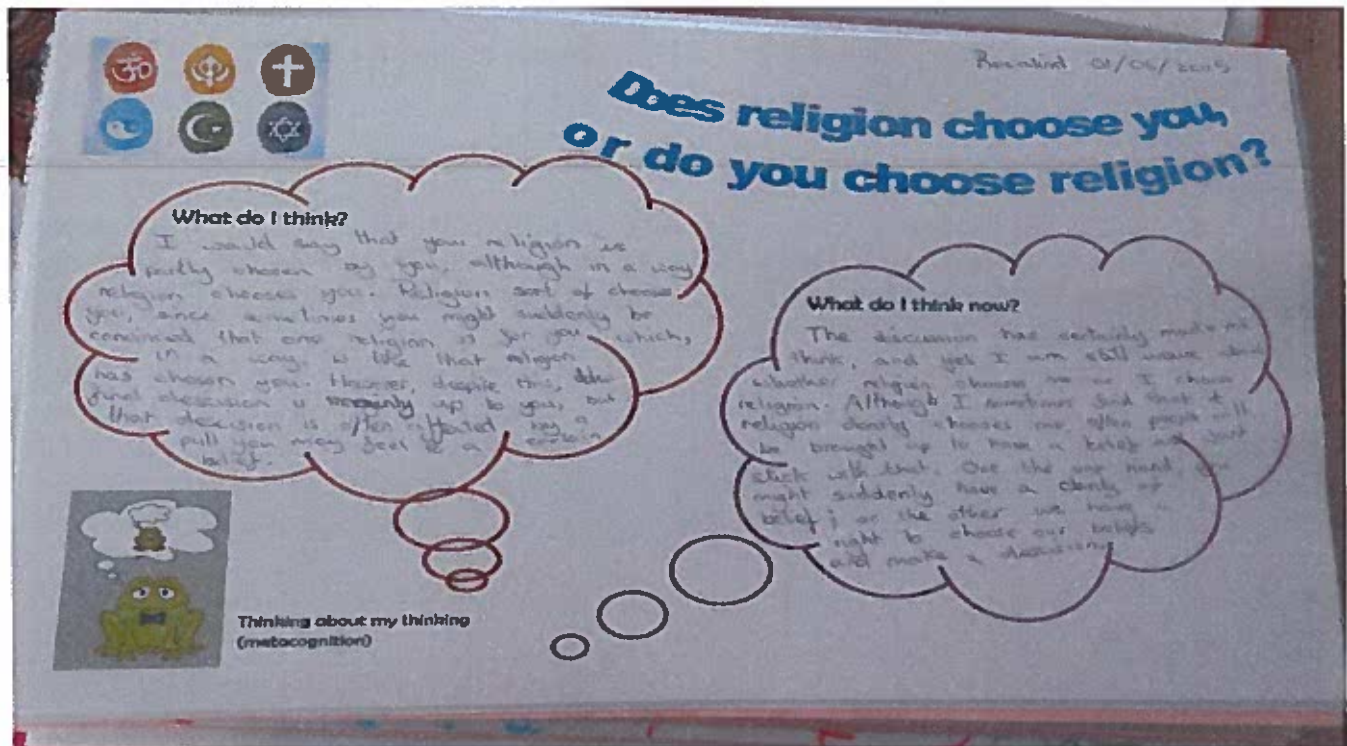 Rosalind 01/06/2015
Does religion choose you,
or do you choose religion?
What do I think?
I would say that your religion is
partly chosen by you, although in a way
religion chooses you. Religion sort of chooses
you, since sometimes you might suddenly be
convinced that one religion is for you which,
in a way, is like that religion
has chosen you. However, despite this, the
final descision is up to you, but
that decision is often affected by a
pull you may feel to a certain
belief.
What do I think now?
The discussion has certainly made me
think, and yet I am still
whether religion chooses me or I choose
religion. Although I sometimes find that
religion clearly chooses me often people will
be brought up to have a belief and just
stick with that. One the one hand, you
might suddenly have a clarity of
belief; on the other we have a
right to choose our beliefs
and make a
Thinking about my thinking
(metacognition)